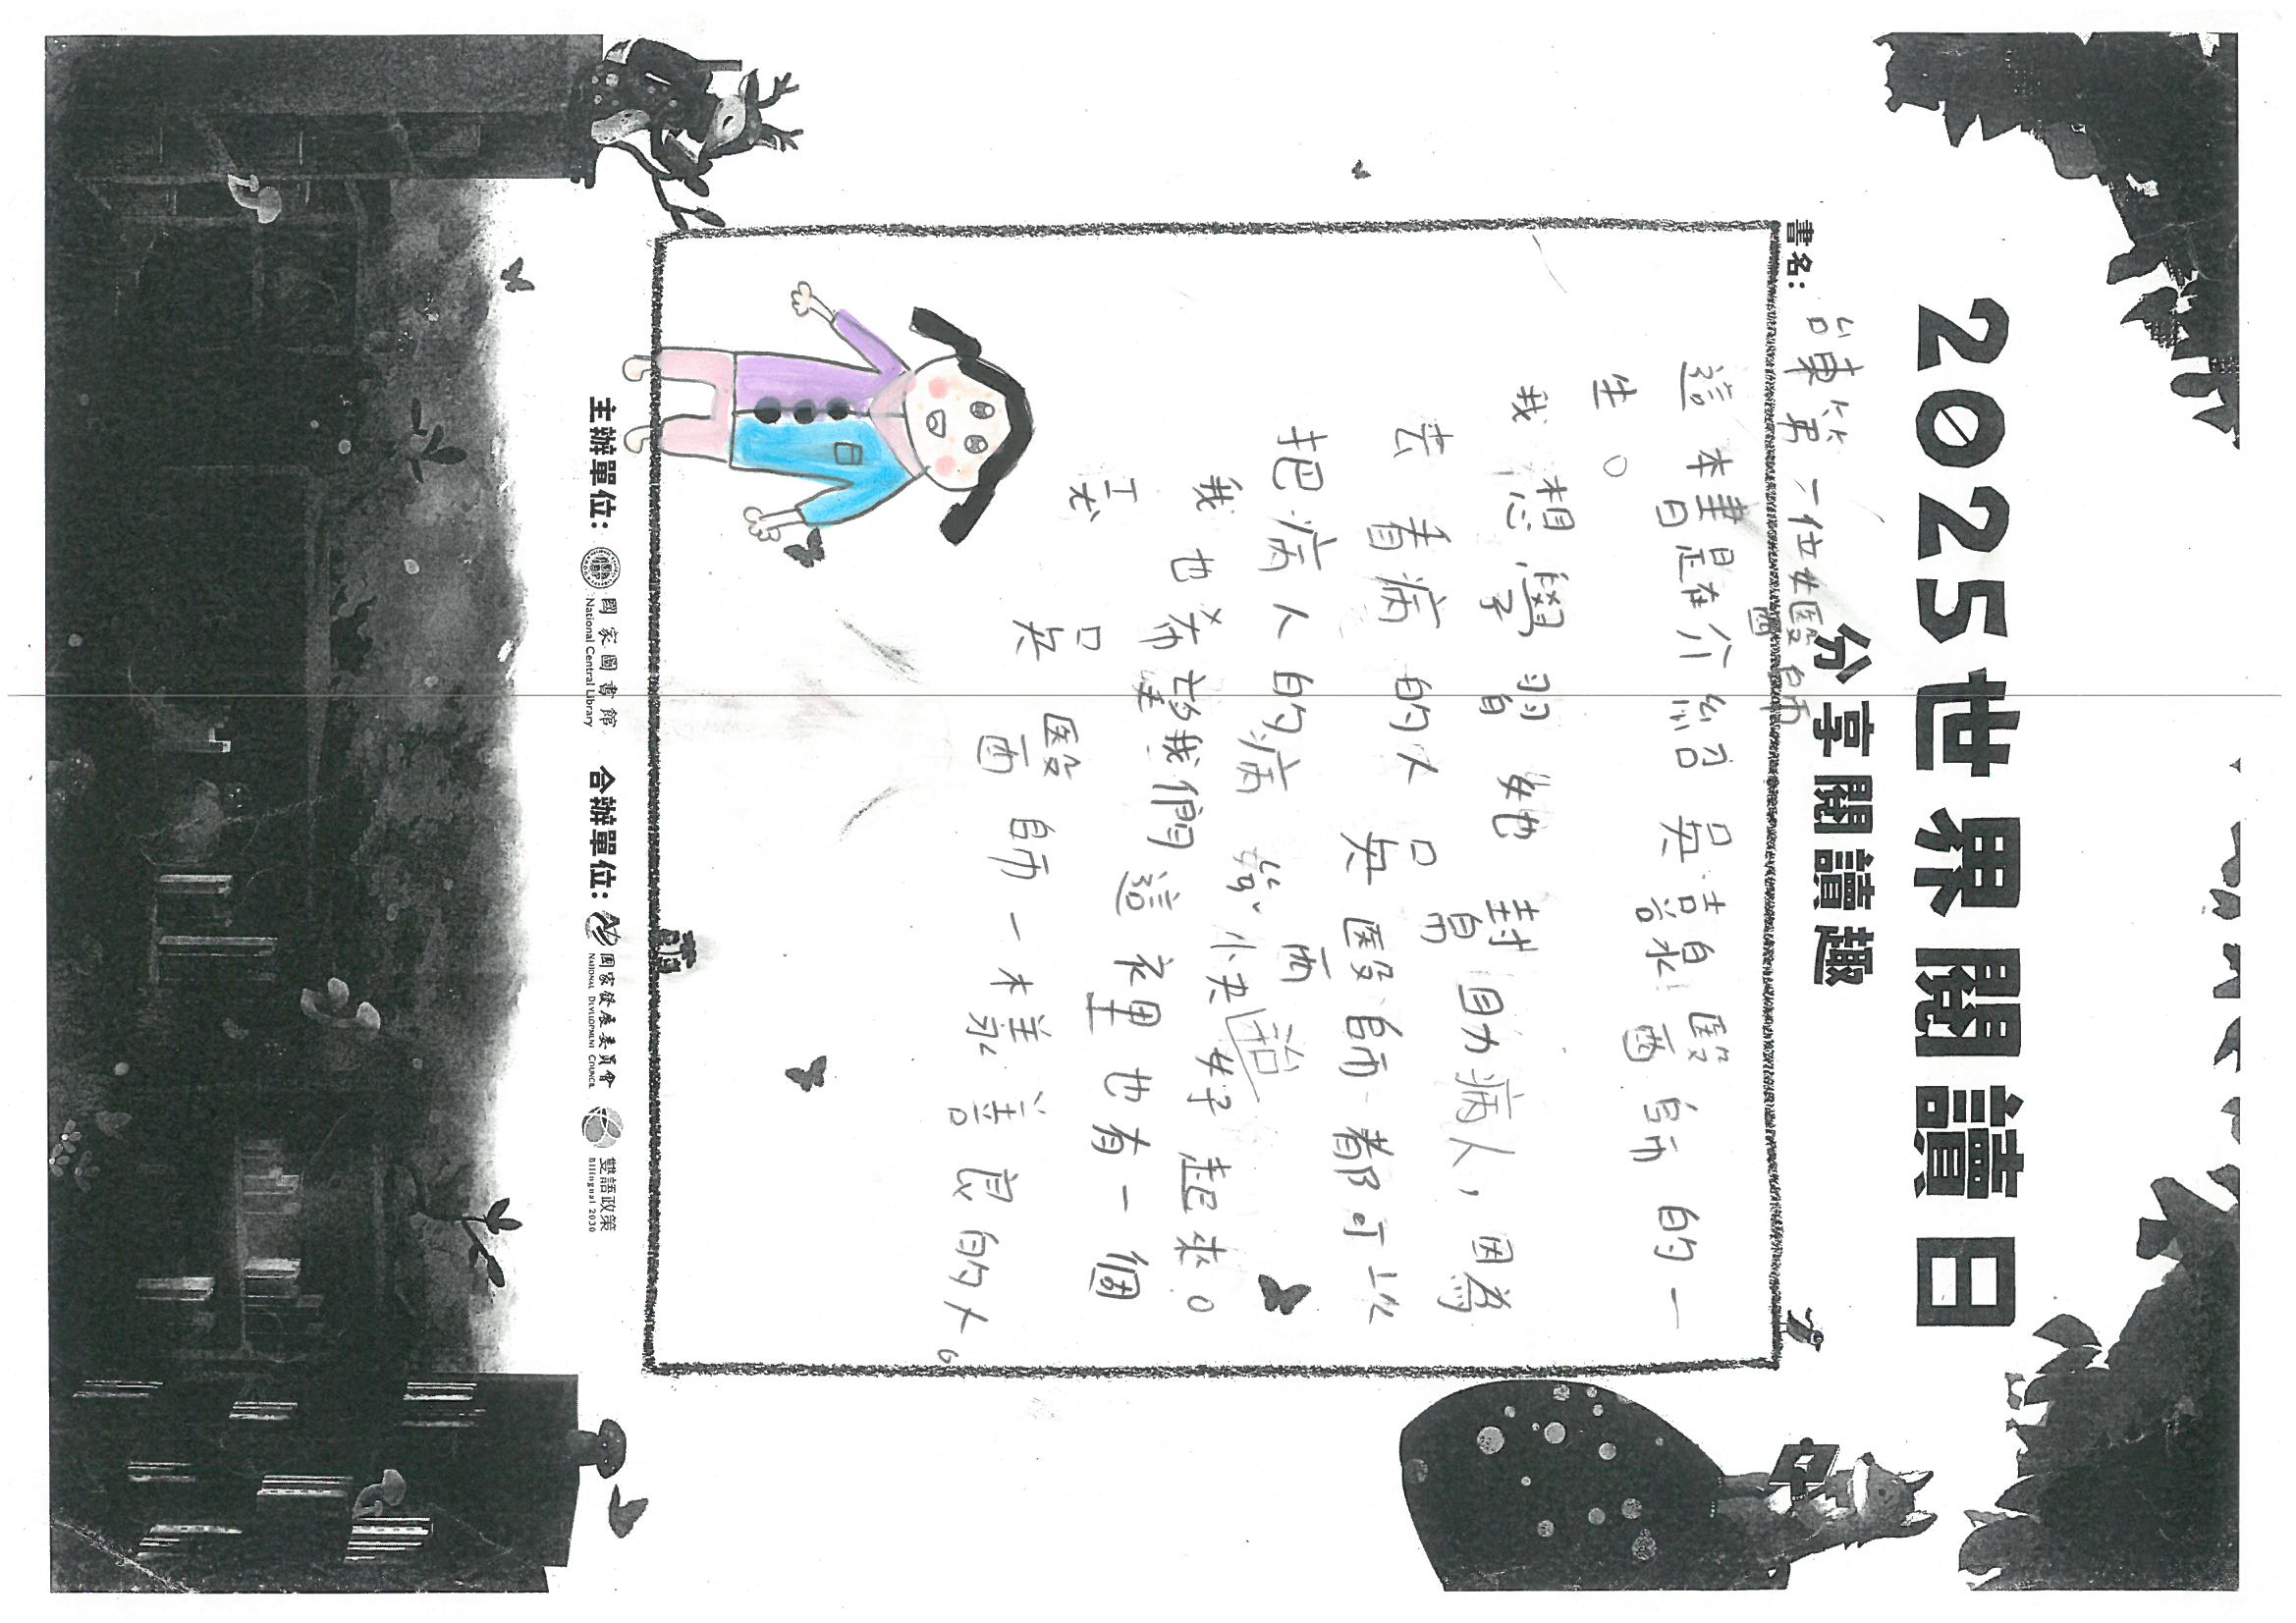 2025世界閱讀日
分享閱讀趣
書名：台東第一位女醫師
這本書是在介紹吳醫師的一
生。
我想學習她幫助病人，因為
去看病的人吳醫師都可以
把病人的病快治好起來。
我也希望我們這裡也有一個
吳醫師一樣善良的人。
主辦單位：國家圖書館 National Central Library 合辦單位：國家發展委員會 NATIONAL DEVELOPMENT COUNCIL 雙語政策 Bilingual 2030